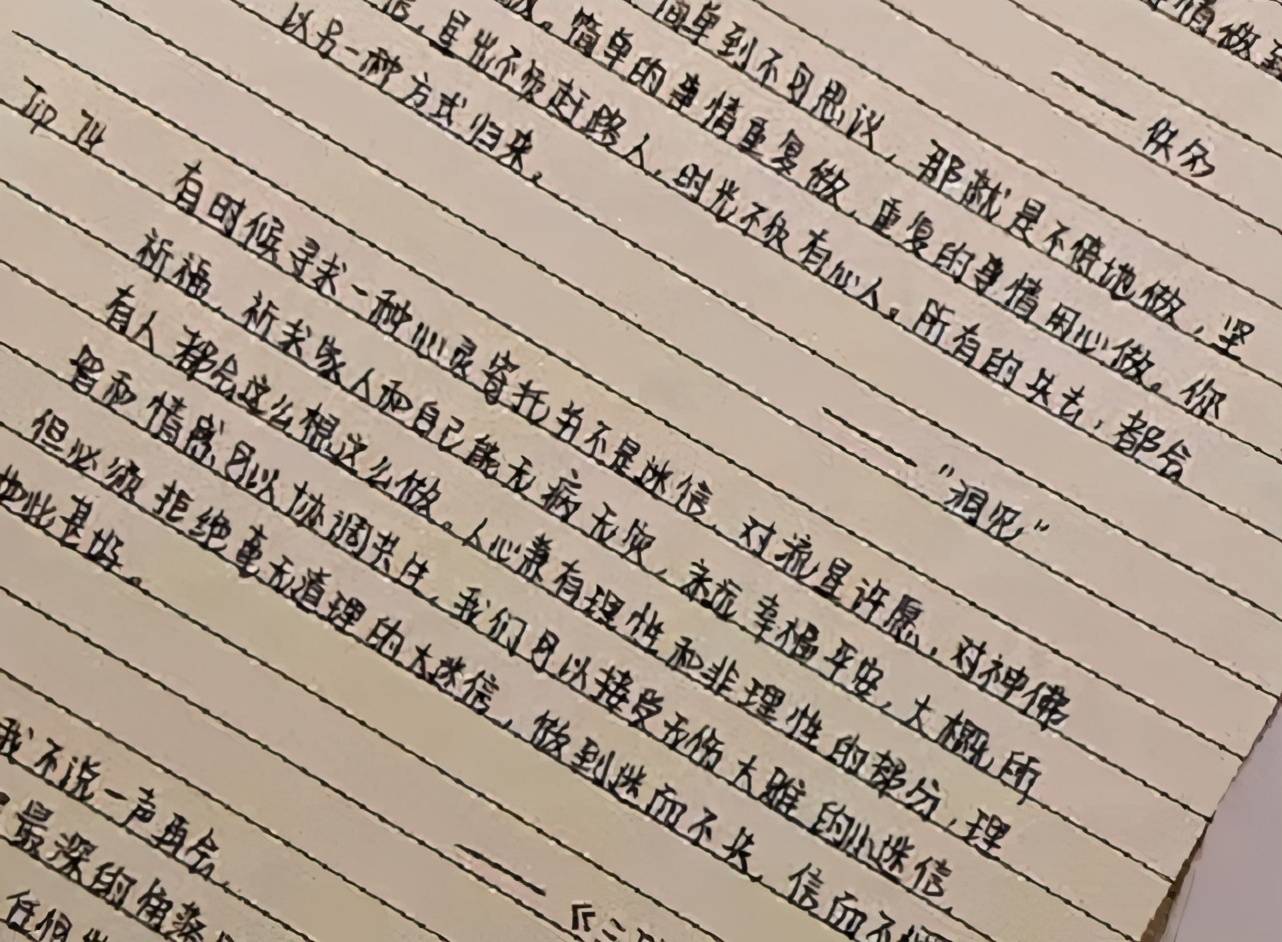 ——佚名
简单到不可思议，那就是不停地做，坚
简单的事情重复做，重复的事情用心做。你
信，星出不负赶路人，时光不负有心人。所有的失去，都会
以另一种方式归来。
——“洞见”
Tip 74
有时候寻求一种心灵寄托并不是迷信，对流星许愿，对神佛
祈福，祈求家人和自己能无病无灾，永远幸福平安，大概所
有人都会这么想这么做。人心兼有理性和非理性的部分，理
智和情感可以协调共往，我们可以接受无伤大雅的小迷信，
但必须拒绝毫无道理的大迷信，做到迷而不失，信而不
如此甚好。
——《三
我不说一声再会，
最深的角落
任何